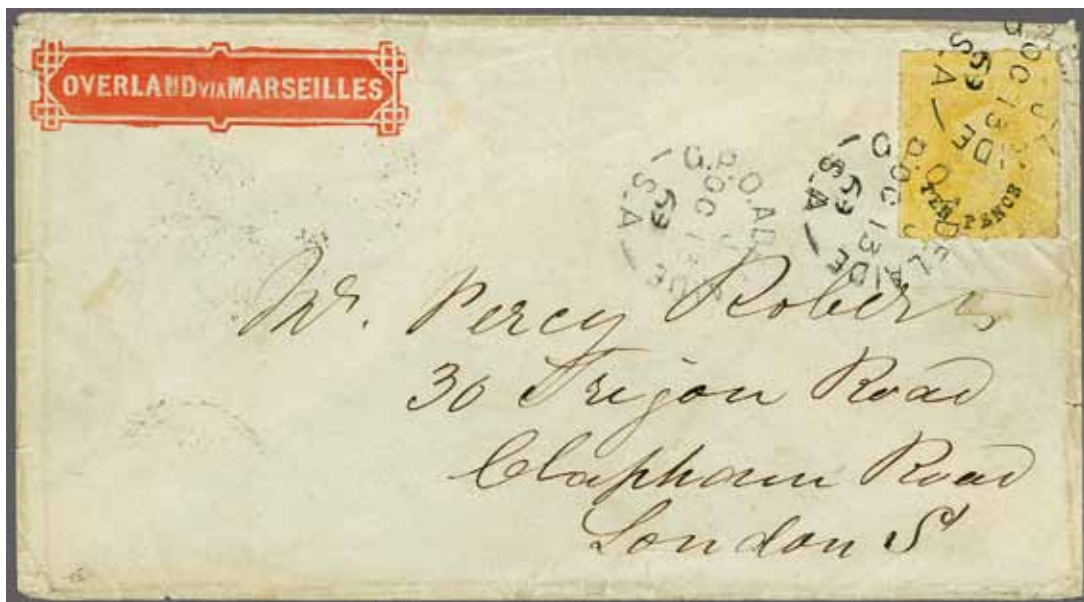 OVERLAND VIA MARSEILLES
G.P.O. ADELAIDE
OC 13
69
S.A
G.P.O. ADELAIDE
OC 13
69
S.A
G.P.O. ADELAIDE
OC 13
69
S.A
TEN PENCE
Mr. Percy Roberts
30 Trigon Road
Clapham Road
London S